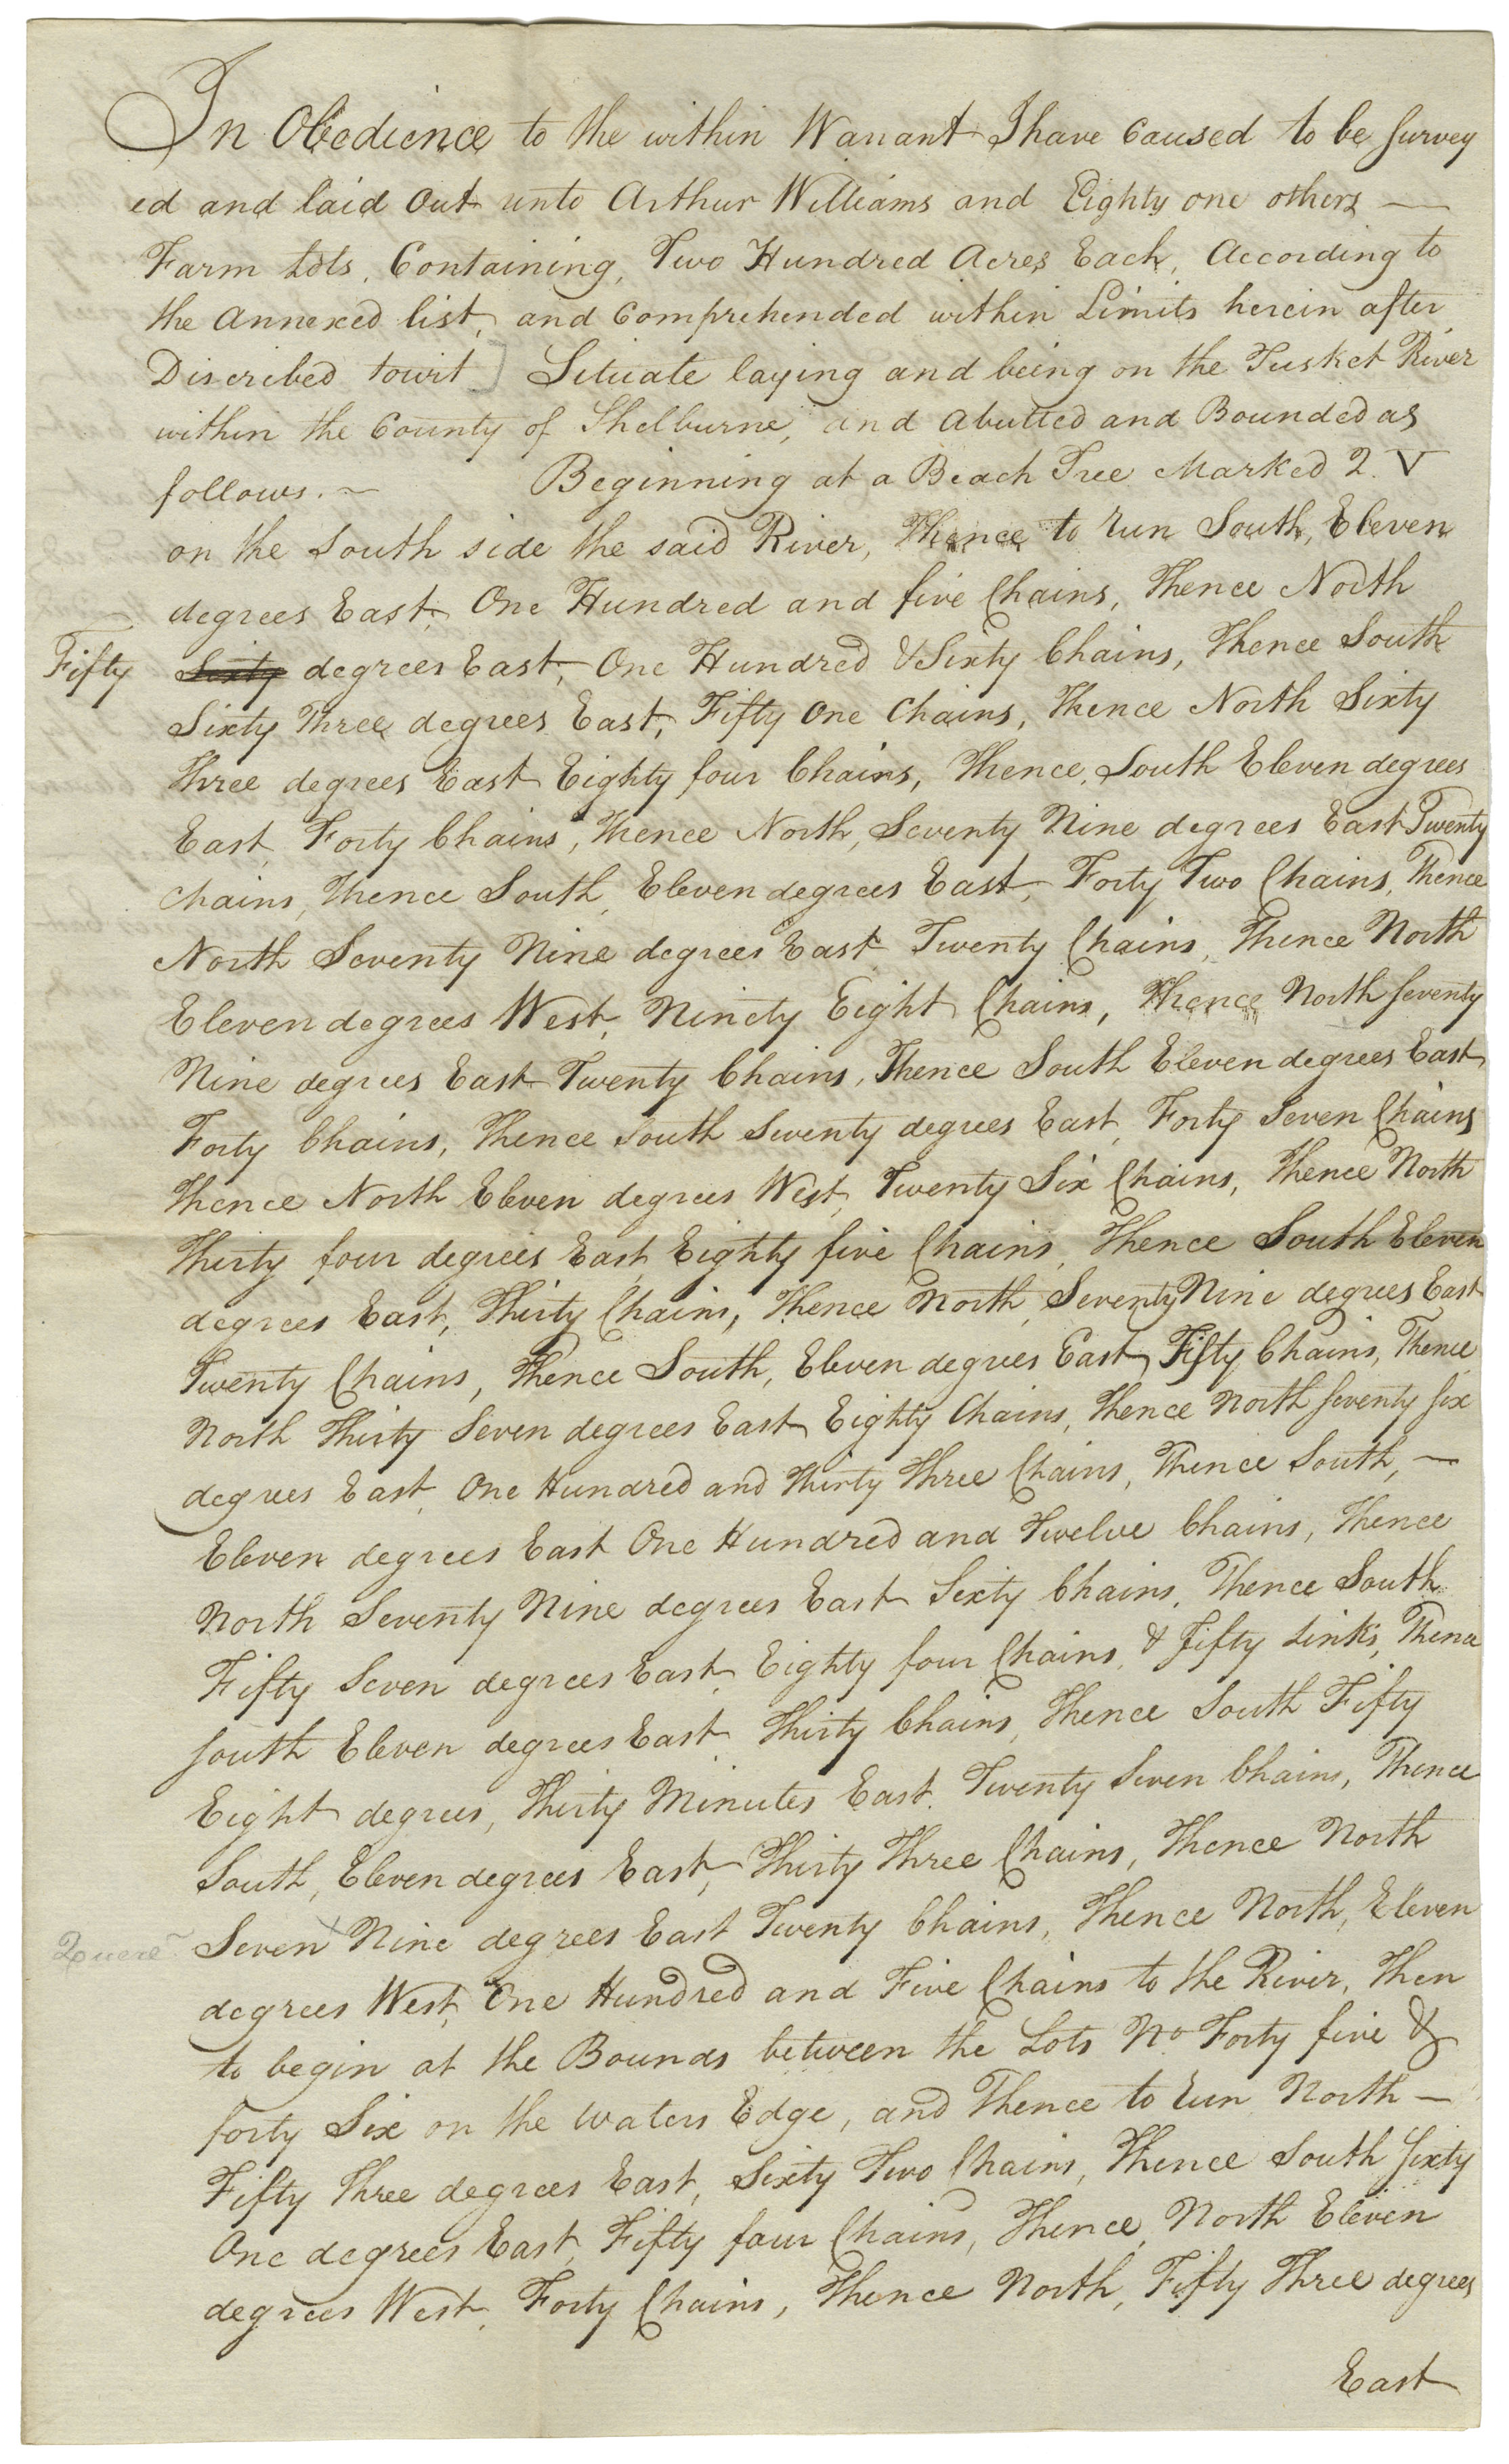 In Obedience to the within Warrant I have Caused to be survey
ed and laid Out unto Arthur Williams and Eighty one others —
Farm Lots, Containing, Two Hundred Acres Each, According to
the Annexed list, and Comprehended within Limits herein after
Discribed towit] Situate laying and being on the Tusket River
within the County of Shelburne, and Abutted and Bounded as
follows. ~ Beginning at a Beach Tree Marked 2. V
on the South side the said River, Thence to run South, Eleven
degrees East, One Hundred and five Chains, Thence North
Fifty Sixty degrees East, One Hundred & Sixty Chains, Thence South
Sixty Three degrees East, Fifty One Chains, Thence North Sixty
Three degrees East Eighty four Chains, Thence, South Eleven degrees
East, Forty Chains, Thence North, Seventy Nine degrees East Twenty
Chains, Thence South, Eleven degrees East, Forty Two Chains, Thence
North Seventy Nine degrees East Twenty Chains, Thence North
Eleven degrees West, Ninety Eight Chains, Thence North seventy
Nine degrees East Twenty Chains, Thence South Eleven degrees East
Forty Chains, Thence South Seventy degrees East, Forty Seven Chains
Thence North Eleven degrees West, Twenty Six Chains, Thence North
Thirty four degrees East Eighty five Chains, Thence South Eleven
degrees East, Thirty Chains, Thence North, Seventy Nine degrees East
Twenty Chains, Thence South, Eleven degrees East, Fifty Chains, Thence
North Thirty Seven degrees East Eighty Chains, Thence North seventy six
degrees East, One Hundred and Thirty Three Chains, Thence South, —
Eleven degrees East One Hundred and Twelve Chains, Thence
North Seventy Nine degrees East Sixty Chains, Thence South
Fifty Seven degrees East, Eighty four Chains, & fifty Links, Thence
South Eleven degrees East Thirty Chains, Thence South Fifty
Eight degrees, Thirty Minutes East. Twenty Seven Chains, Thence
South, Eleven degrees East, Thirty Three Chains, Thence North
Quere ~ Seven x Nine degrees East Twenty Chains, Thence North, Eleven
degrees West, One Hundred and Five Chains to the River, Then
to begin at the Bounds between the Lots No Forty five &
forty Six on the Waters Edge, and Thence to run North —
Fifty Three degrees East, Sixty Two Chains, Thence South sixty
One degrees East, Fifty four Chains, Thence, North Eleven
degrees West, Forty Chains, Thence North, Fifty Three degrees
East